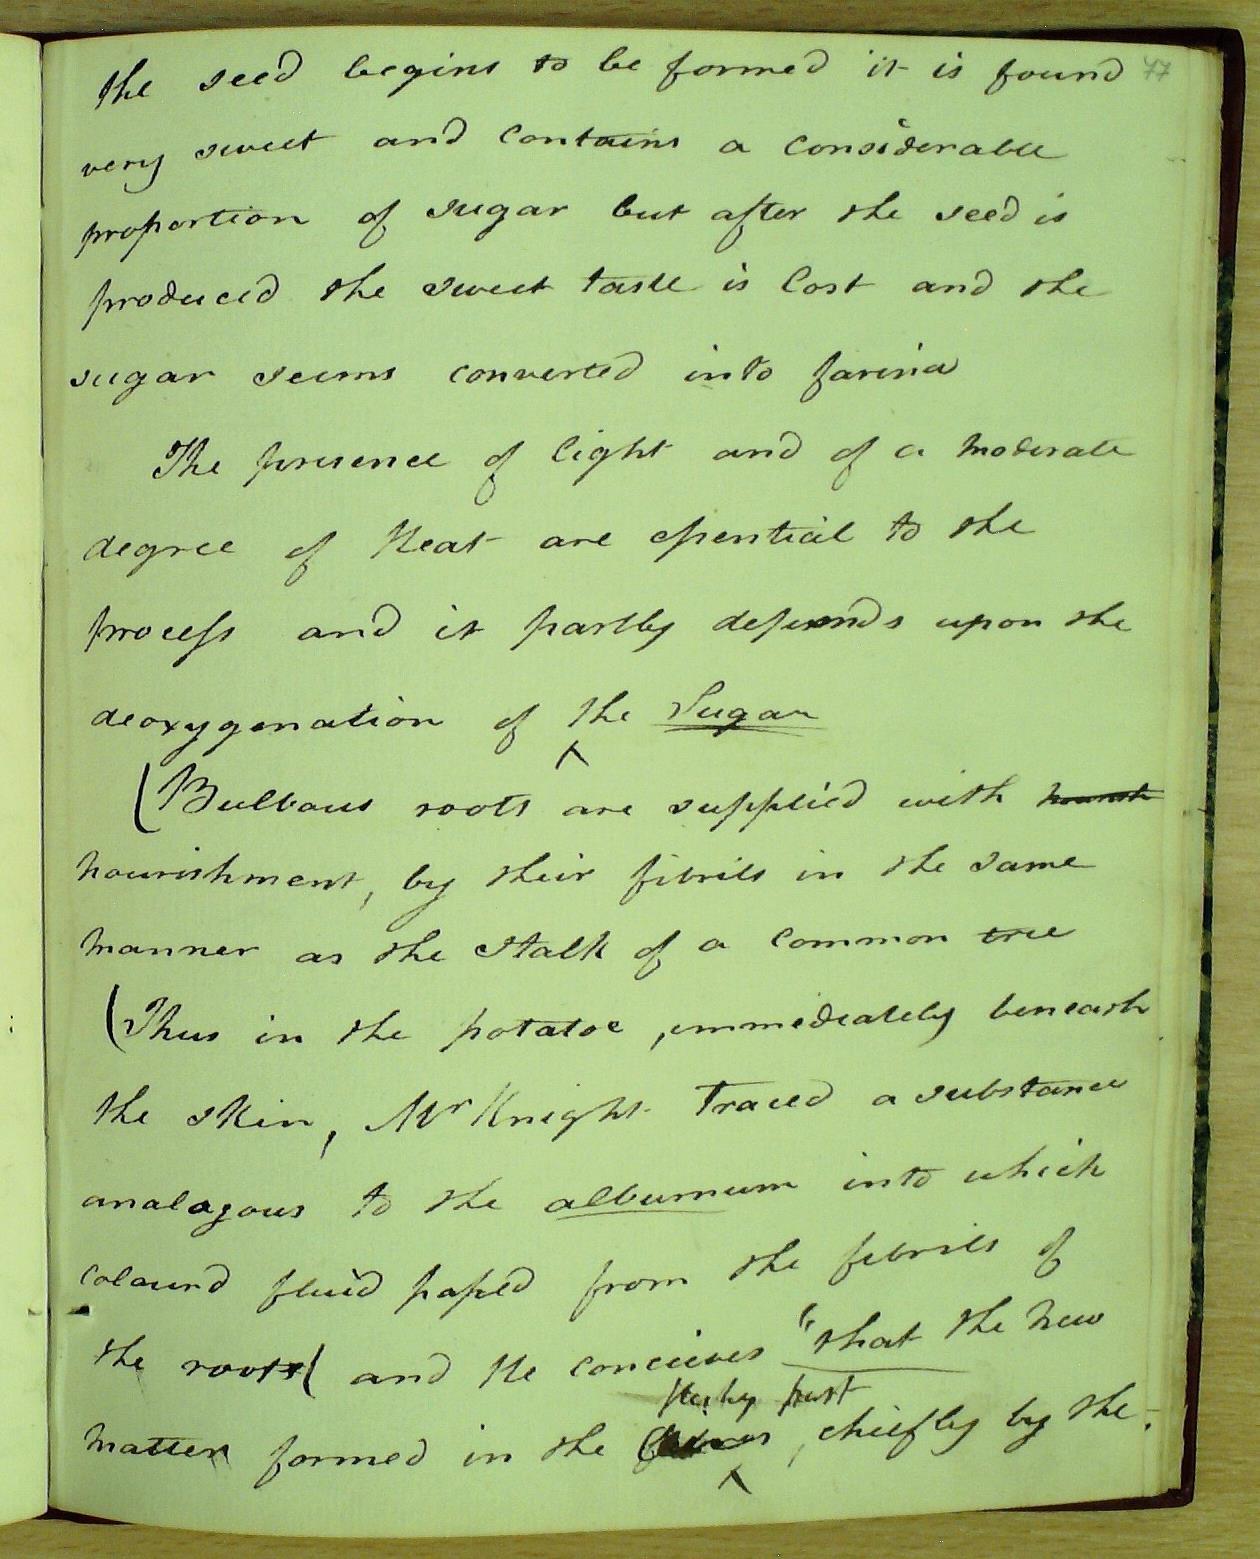 the seed begins to be formed it is found 77
very sweet and contains a considerable
proportion of sugar but after the seed is
produced the sweet taste is lost and the
sugar seems converted into farina
The presence of light and of a moderate
degree of Heat are eſsential to the
proceſs and it partly depends upon the
deoxygenation of the Sugar
(Bulbous roots are supplied with nourish
nourishment, by their fibrils in the same
manner as the stalk of a common tree
(Thus in the potatoe, immediately beneath
the skin, Mr Knight traced a substance
analagous to the alburnum into which
colourd fluid paſsed from the fibrils of
the roots( and He concieves "that the new
fleshy part
matter formed in the , chiefly by the